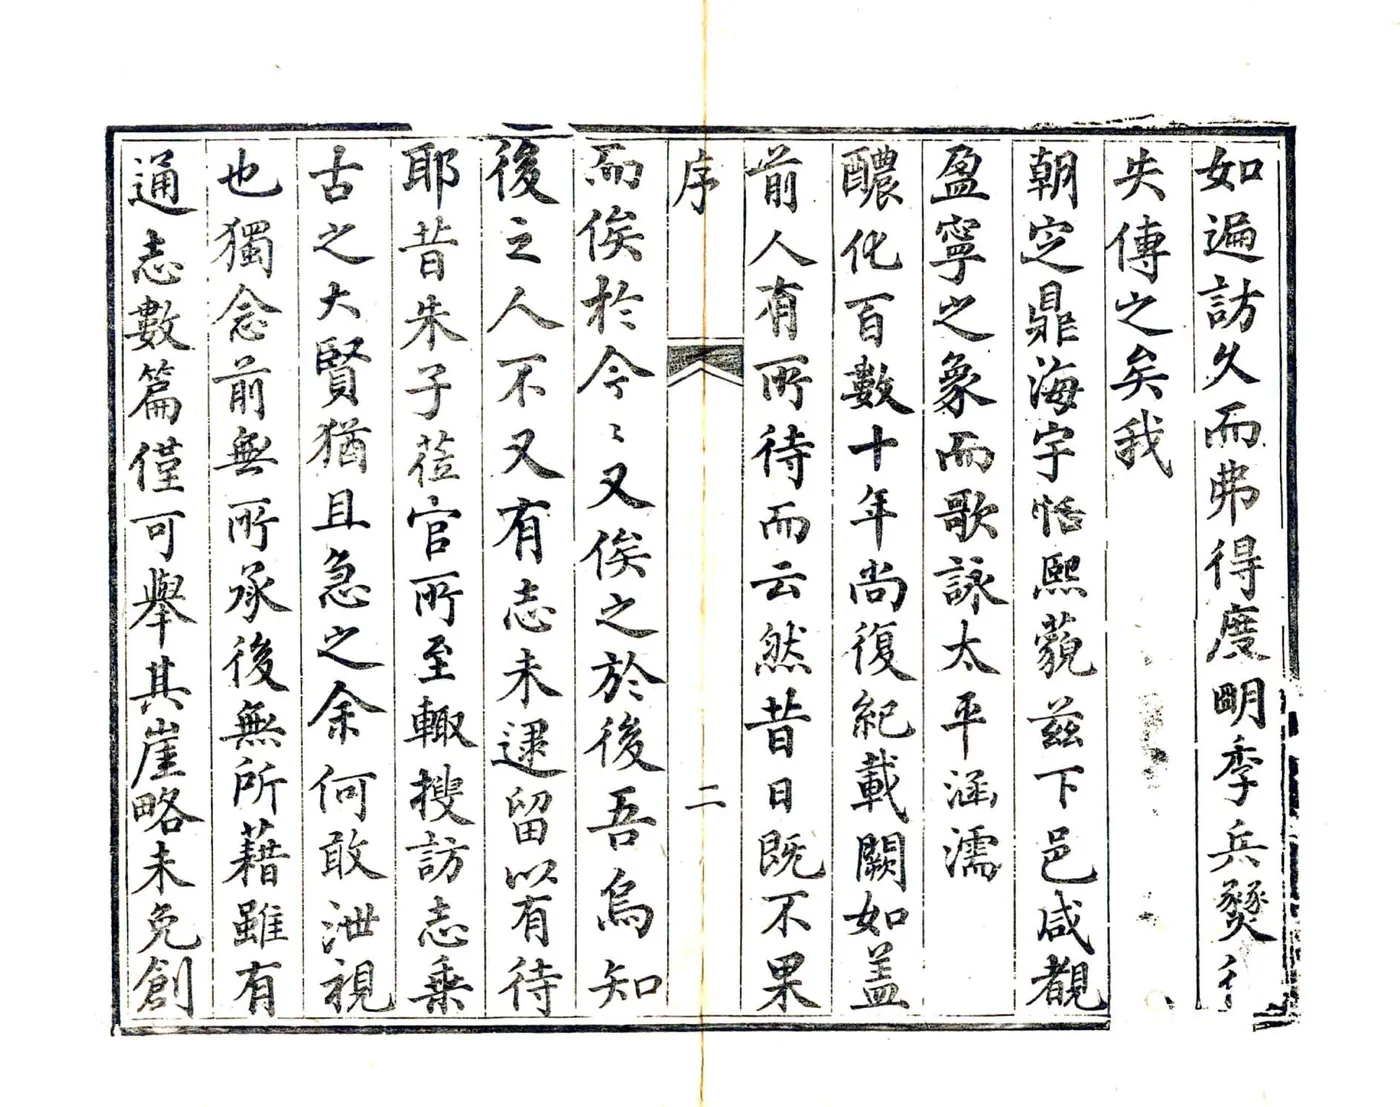 如遍訪久而弗得度明季兵燹
失傳之矣我
朝定鼎海宇恬熙藐兹下邑咸覩
盈寧之象而歌詠太平涵濡
醲化百數十年尚復紀載闕如蓋
前人有所待而云然昔日既不果
序
二
而俟於今〻又俟之於後吾烏知
後之人不又有志未逮留以有待
耶昔朱子蒞官所至輙搜訪志乗
古之大賢猶且急之余何敢泄視
也獨念前無所承後無所藉雖有
通志數篇僅可舉其崖略未免創